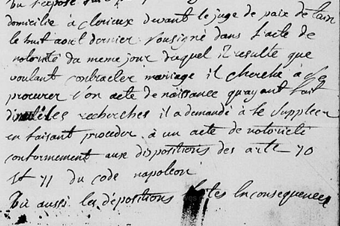 domicilié à clorieux devant le juge de paix de
le huit aout dernier consigné dans l'acte de
notorieté du meme jour duquel il resulte que
voulant contracter mariage il cherche à se
procurer son acte de naissance qu'ayant fait
recherches il a demandé à le suppleer
en faisant proceder à un acte de notorieté
conformement aux dispositions des arts 70
et 71 du code napoleon
Vu aussi les depositions consequences